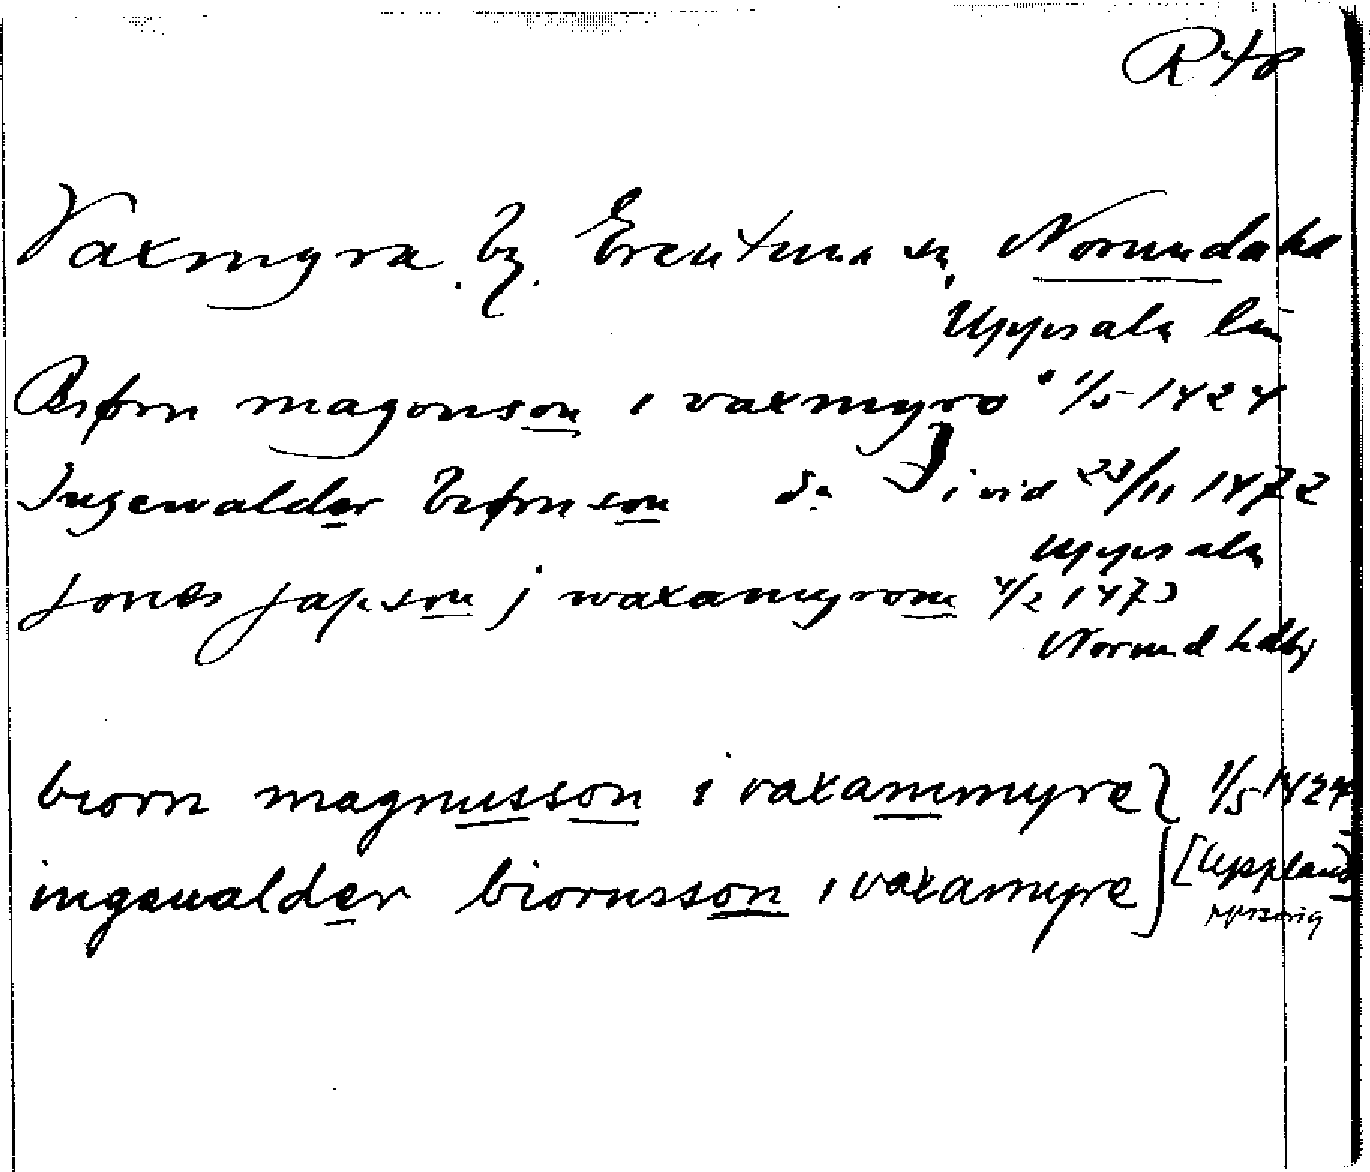 Vaxmyra. by. Ärentuna sn, Norunda hd
Uppsala län
Biørn magonson i vaxmyro 1/5 1424
Ingewalder biørnson do ibid 23/11 1472
Uppsala
Jones Japson j waxamyrom 4/2 1473
Norund hdbr
biorn magnusson i vaxammyre } 1/5 1424
ingeualder biornsson i vaxamyre } [Uppland]